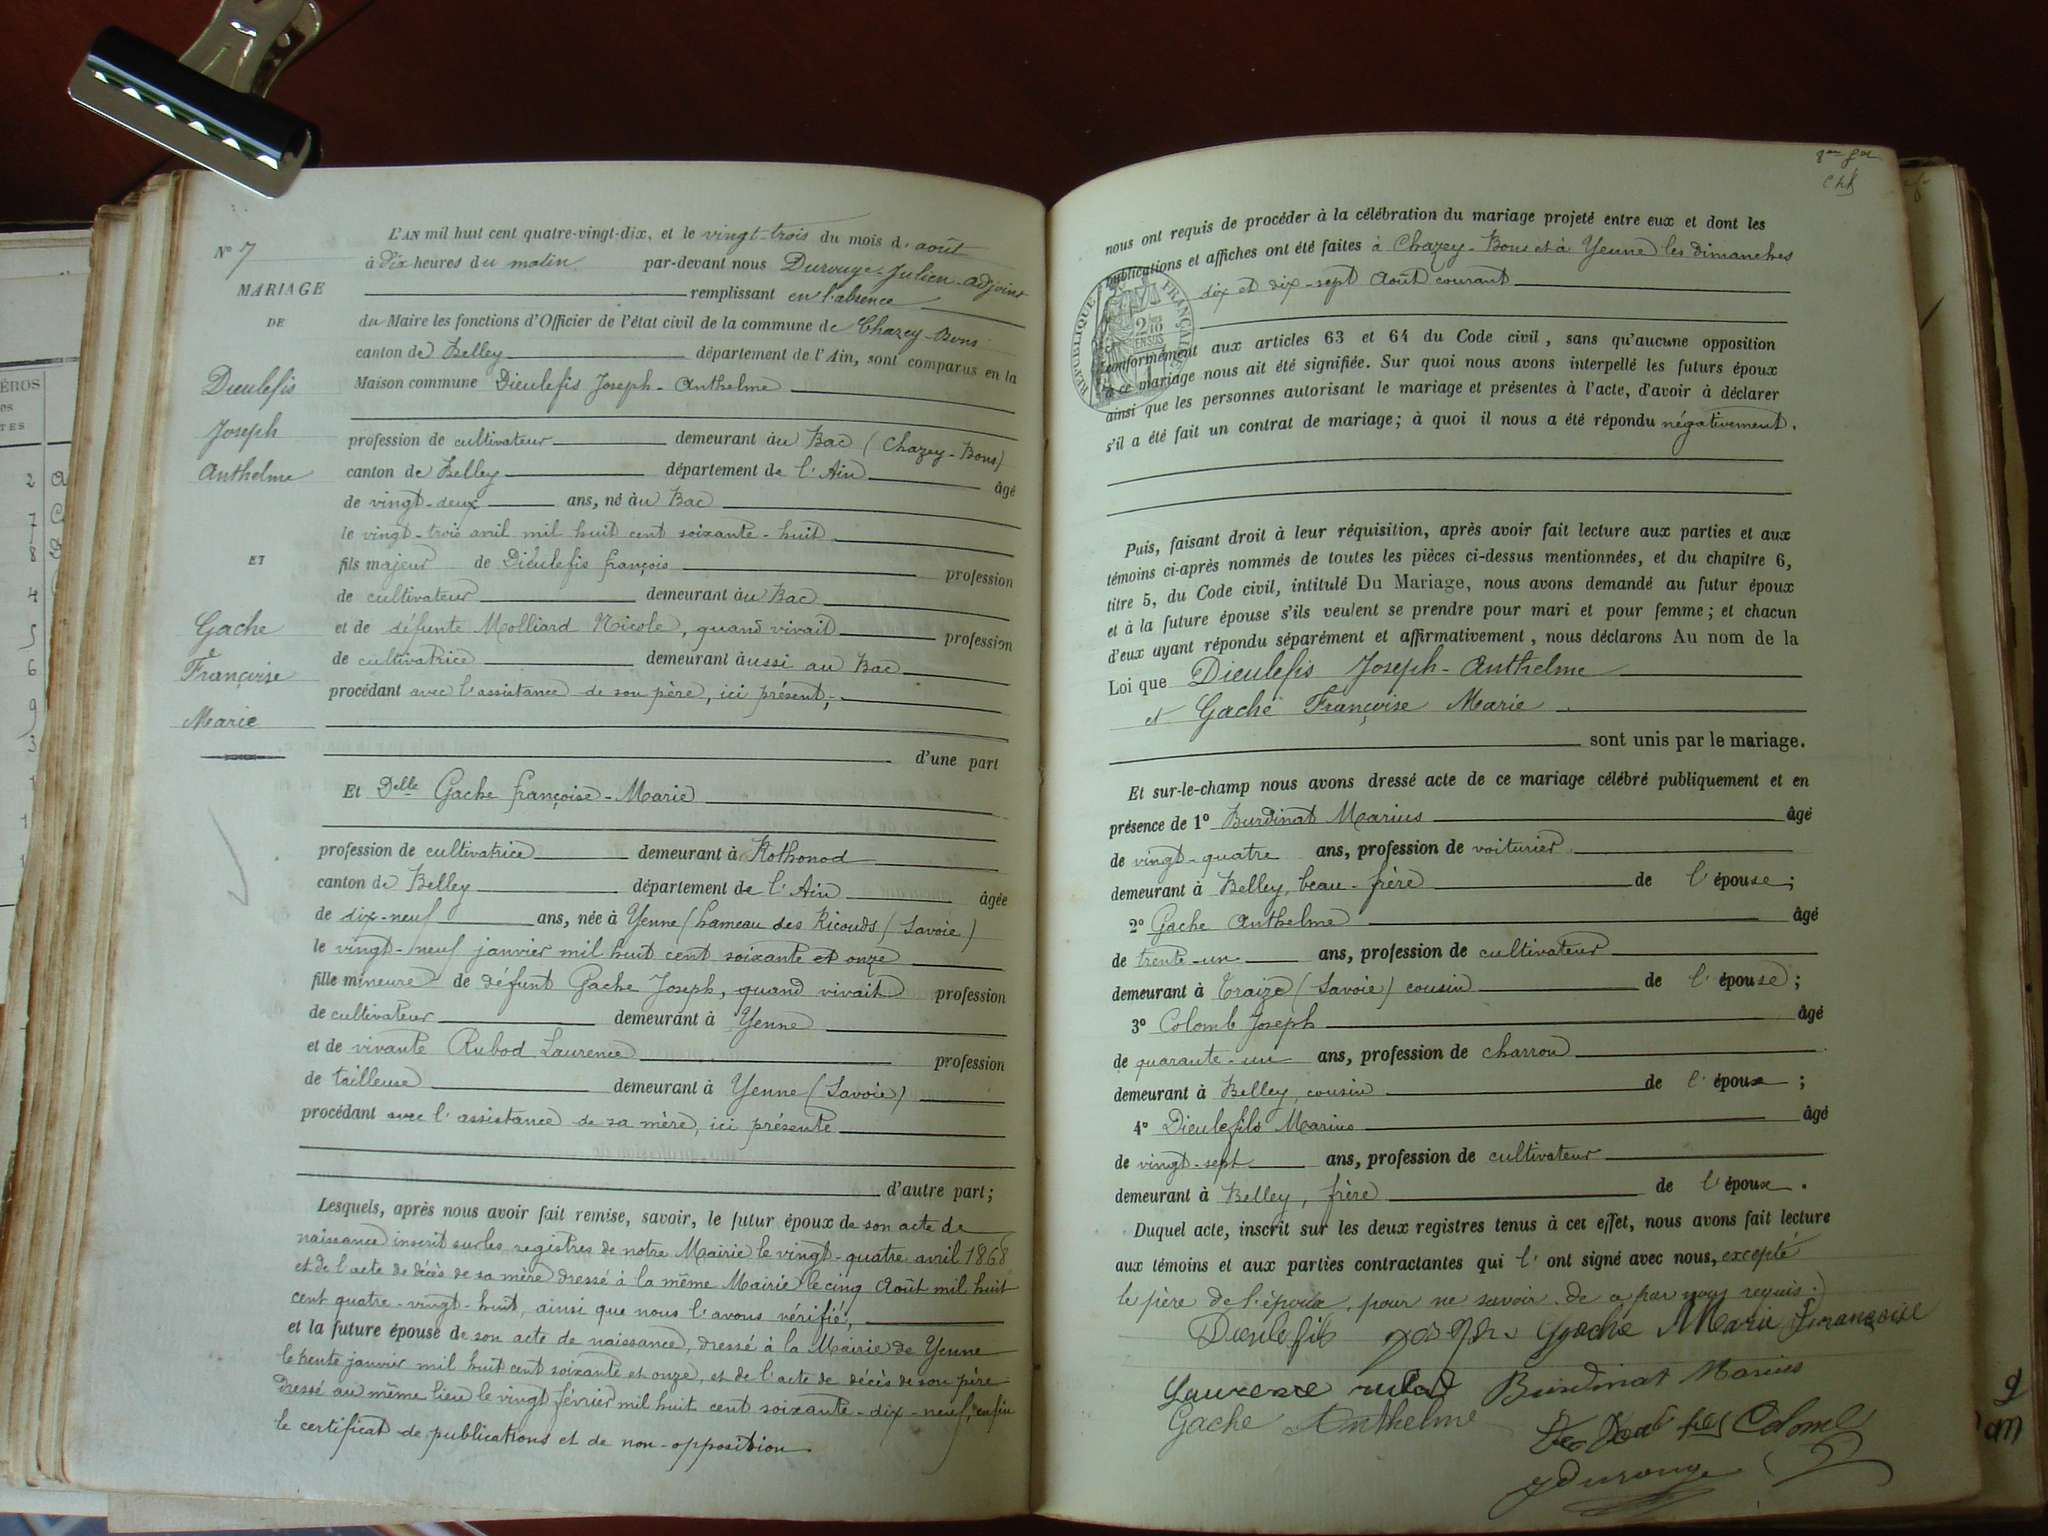 N° 7
MARIAGE
DE
Dieulefis
Joseph
Anthelme
ET
Gache
Françoise
Marie
L'AN mil huit cent quatre-vingt-dix, et le vingt-trois du mois d. août
à dix heures du matin par-devant nous Durouge Julien adjoint
remplissant en l'absence
du Maire les fonctions d'Officier de l'état civil de la commune de Chazey-Bons
canton de Belley département de l'Ain, sont comparus en la
Maison commune Dieulefis Joseph-Anthelme
profession de cultivateur demeurant au Bac (Chazey-Bons)
canton de Belley département de l'Ain âgé
de vingt-deux ans, né au Bac
le vingt-trois avril mil huit cent soixante-huit
fils majeur de Dieulefis françois profession
de cultivateur demeurant au Bac
et de défunte Molliard Nicole, quand vivait profession
de cultivatrice demeurant aussi au Bac
procédant avec l'assistance de son père, ici présent,
d'une part
Et Delle Gache françoise-Marie
profession de cultivatrice demeurant à Rothonod
canton de Belley département de l'Ain âgée
de dix-neuf ans, née à Yenne (hameau des Ricouds (Savoie)
le vingt-neuf janvier mil huit cent soixante et onze
fille mineure de défunt Gache Joseph, quand vivait profession
de cultivateur demeurant à Yenne
et de vivante Rubod Laurence profession
de tailleuse demeurant à Yenne (Savoie)
procédant avec l'assistance de sa mère, ici présente
d'autre part;
Lesquels, après nous avoir fait remise, savoir, le futur époux de son acte de
naissance inscrit sur les registres de notre Mairie le vingt-quatre avril 1868
et de l'acte de décès de sa mère dressé à la même Mairie le cinq Août mil huit
cent quatre-vingt-huit, ainsi que nous l'avons vérifié,
et la future épouse de son acte de naissance, dressé à la Mairie de Yenne
le trente janvier mil huit cent soixante et onze, et de l'acte de décès de son père
dressé au même lieu le vingt février mil huit cent soixante-dix-neuf, enfin
le certificat de publications et de non-opposition
nous ont requis de procéder à la célébration du mariage projeté entre eux et dont les
publications et affiches ont été faites à Chazey-Bons et à Yenne les dimanches
dix et dix-sept Août courant
RÉPUBLIQUE FRANÇAISE
conformément aux articles 63 et 64 du Code civil, sans qu'aucune opposition
à ce mariage nous ait été signifiée. Sur quoi nous avons interpellé les futurs époux
ainsi que les personnes autorisant le mariage et présentes à l'acte, d'avoir à déclarer
s'il a été fait un contrat de mariage; à quoi il nous a été répondu négativement.
Puis, faisant droit à leur réquisition, après avoir fait lecture aux parties et aux
témoins ci-après nommés de toutes les pièces ci-dessus mentionnées, et du chapitre 6,
titre 5, du Code civil, intitulé Du Mariage, nous avons demandé au futur époux
et à la future épouse s'ils veulent se prendre pour mari et pour femme; et chacun
d'eux ayant répondu séparément et affirmativement, nous déclarons Au nom de la
Loi que Dieulefis Joseph-Anthelme
et Gache Françoise Marie
sont unis par le mariage.
Et sur-le-champ nous avons dressé acte de ce mariage célébré publiquement et en
présence de 1° Burdinat Marius âgé
de vingt-quatre ans, profession de voiturier
demeurant à Belley, beau-frère de l'épouse;
2° Gache Anthelme âgé
de trente-un ans, profession de cultivateur
demeurant à Traize (Savoie) cousin de l'épouse;
3° Colomb Joseph âgé
de quarante-un ans, profession de charron
demeurant à Belley, cousin de l'époux;
4° Dieulefils Marius âgé
de vingt-sept ans, profession de cultivateur
demeurant à Belley, frère de l'époux.
Duquel acte, inscrit sur les deux registres tenus à cet effet, nous avons fait lecture
aux témoins et aux parties contractantes qui l'ont signé avec nous, excepté
le père de l'époux, pour ne savoir de ce par nous requis.
Dieulefils Gache Marie Françoise
Laurence Burdinat Marius
Gache Anthelme Colomb
Durouge